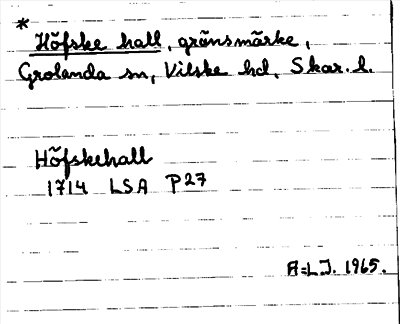 *
Höfske hall, gränsmärke,
Grolanda sn, Vilske hd, Skar. l.
Höfskehall
1714 LSA P27
A-L J. 1965.